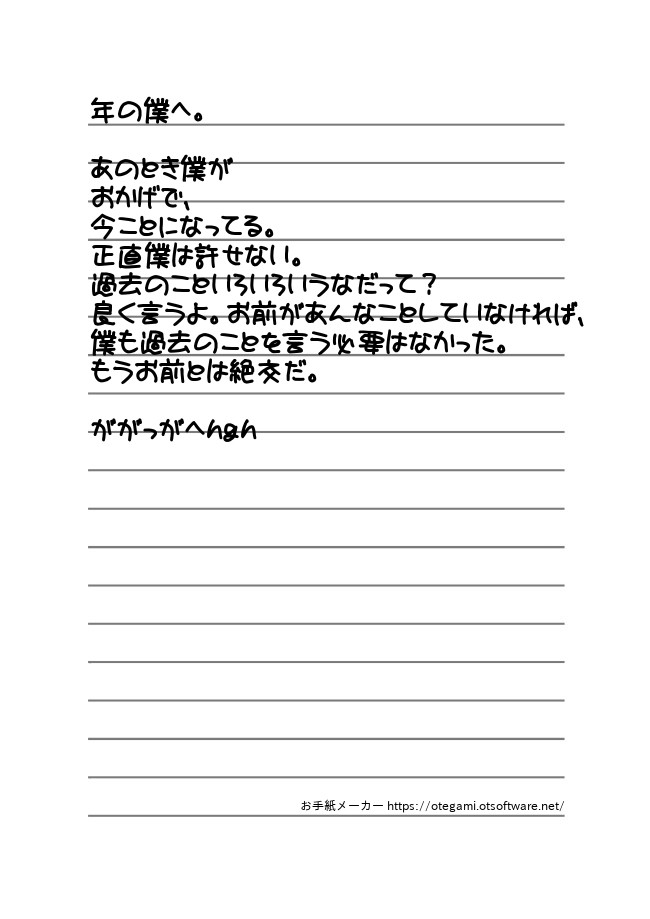 年の僕へ。
あのとき僕が
おかげで、
今ことになってる。
正直僕は許せない。
過去のこといろいろいうなだって？
良く言うよ。お前があんなことしていなければ、
僕も過去のことを言う必要はなかった。
もうお前とは絶交だ。
ががっがへhgh
お手紙メーカー https://otegami.otsoftware.net/